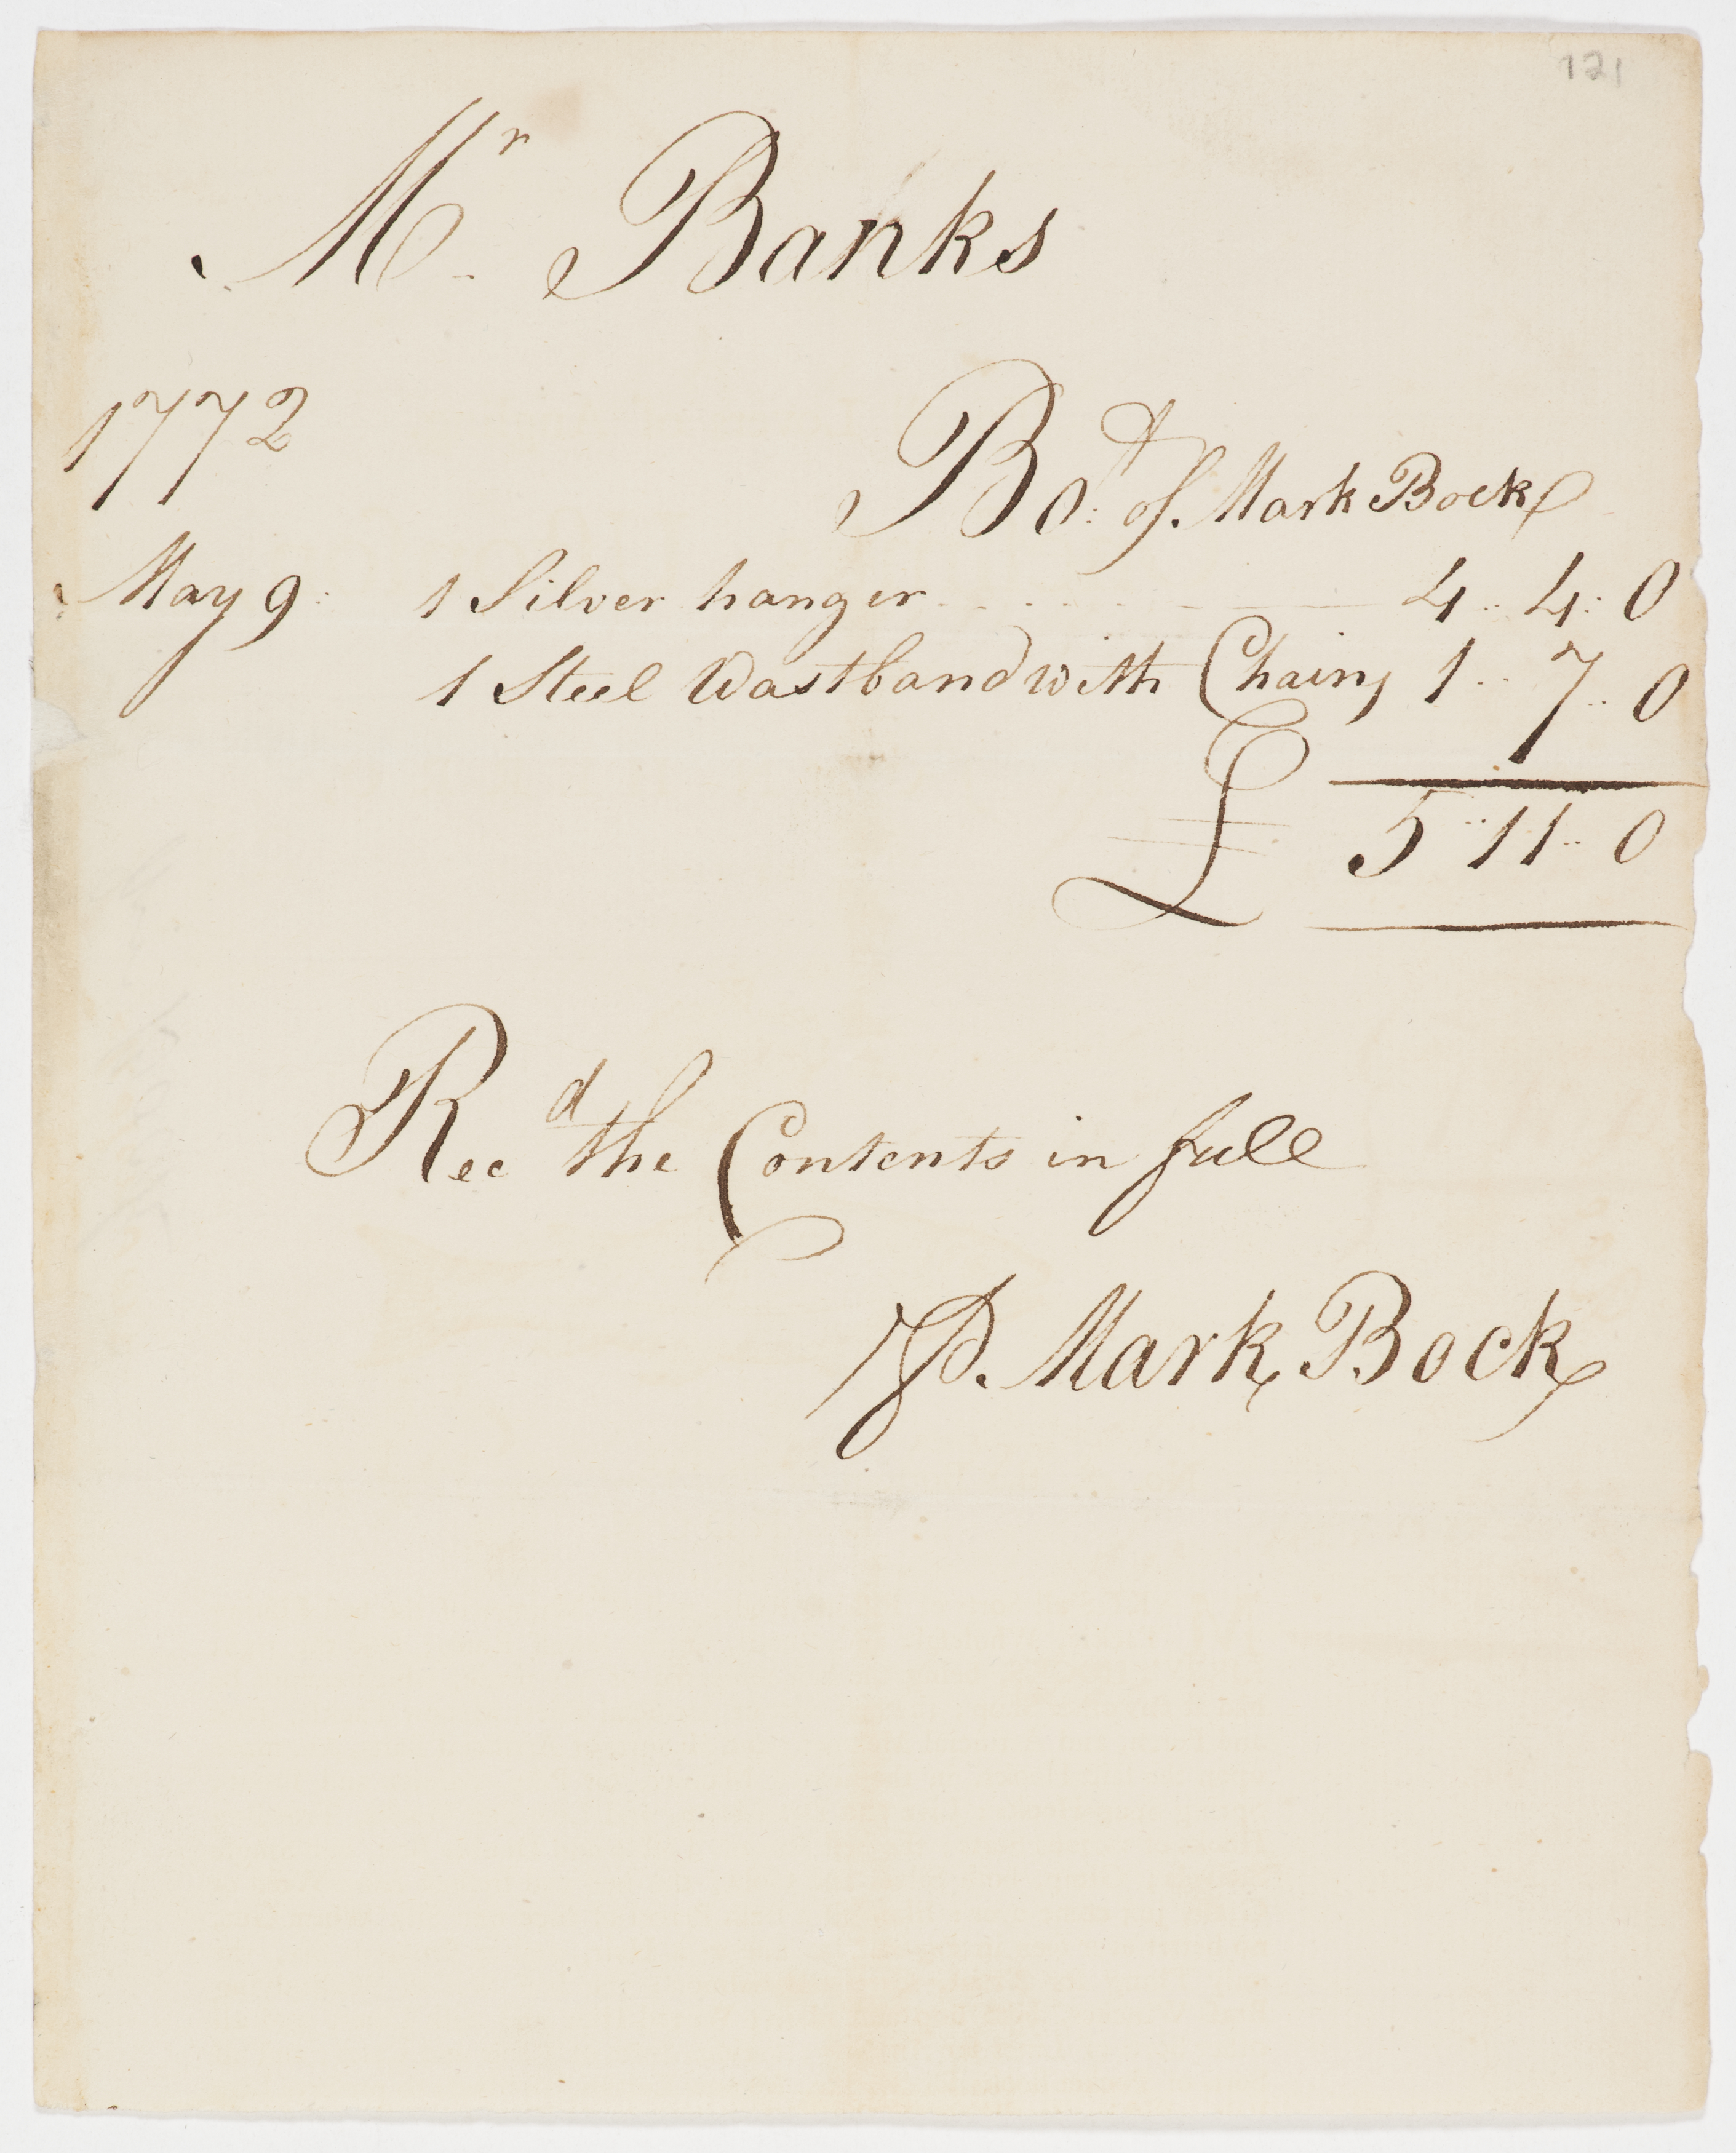 121
Mr Banks
1772
Bot: of. Mark Bock
May 9: 1 Silver hanger 4 .. 4 : 0
1 Steel Wastband with Chains 1 .. 7 .. 0
£ 5 .. 11 .. 0
Recd the Contents in full
₽. Mark Bock